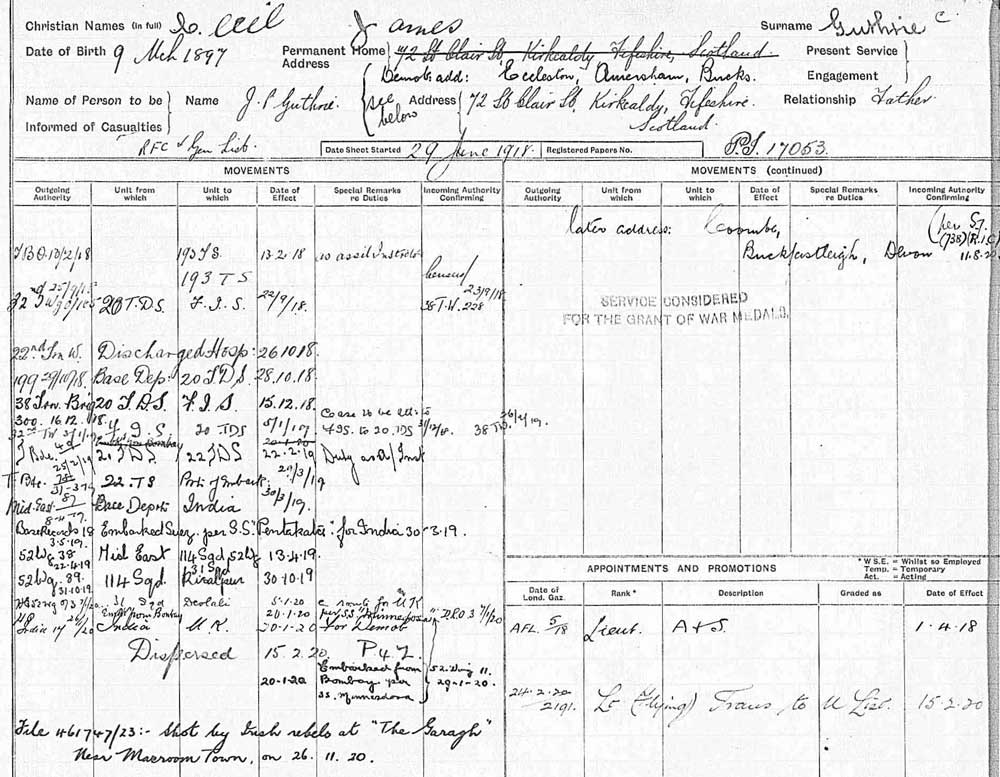 Christian Names (in full) Cecil James Surname Guthrie C
Date of Birth 9 Mch 1897 Permanent Home Address 72 St Clair St, Kirkcaldy, Fifeshire, Scotland. Present Service
Demob: add: Eccleston, Amersham, Bucks. Engagement
Name of Person to be Informed of Casualties Name J. P. Guthrie. see below Address 72 St Clair St, Kirkcaldy, Fifeshire. Relationship Father
Scotland.
RFC & Gen List. Date Sheet Started 29 June 1918. Registered Papers No. P.S. 17053.
MOVEMENTS
Outgoing Authority Unit from which Unit to which Date of Effect Special Remarks re Duties Incoming Authority Confirming
193 T.S. 13-2-18 as assist Instructor
193 T S
20 T.D.S. F.I.S. 22/9/18. 23/9/18
38 T.W. 228
22nd Trn W. Discharged Hosp: 26.10.18.
199 29/10/18. Base Dep: 20 T.D.S. 28.10.18.
38 Trn. Brig 20 T.D.S. F.I.S. 15.12.18.
300. 16.12.18. 20 TDS 5/1/19 Cease to be att:
FIS. to 20 TDS 31/12/18. 38 TW.
T. Bde. 20 TDS 22 TDS 22.2.19 Duty as A/Inst
25/2/19
T. Bde. 22 TS Port of Embark. 29/3/19
31-3-19
Mid. East 87 Base Depot India 30/3/19.
8-4-19.
Base Records 18 Embarked Suez. per S.S. for India 30-3-19.
3.5.19.
52 Wg 38 Mid East 114 Sqd. 52 Wg 13-4-19.
22.4.19 31 Sqd
52 Wg. 89. 114 Sqd. Risalpur 30-10-19
31.10.19
31 Sqd Deolali 5.1.20 en route for UK
Emb from Bombay 20.1.20 per SS "Minnedosa"
India U.K. 20-1-20 For Demob D.R.O 3 7/1/20
Dispersed 15.2.20. P & L.
20-1-20 Embarked from Bombay per SS. Minnedosa 52 Wing 11. 29-1-20.
File 461747/23:- Shot by Irish rebels at "The Garagh"
Near Macroom Town, on 26.11.20.
MOVEMENTS (continued)
Outgoing Authority Unit from which Unit to which Date of Effect Special Remarks re Duties Incoming Authority Confirming
Later address: Coombe,
Buckfastleigh, Devon (738)(R.I.C) 11.8.20
SERVICE CONSIDERED
FOR THE GRANT OF WAR MEDALS.
APPOINTMENTS AND PROMOTIONS
* W.S.E. = Whilst so Employed
Temp. = Temporary
Act. = Acting
Date of Lond. Gaz. Rank* Description Graded as Date of Effect
AFL. 5/18 Lieut. A & S. 1.4.18
24.2.20 2191. Lt (Flying) Trans to U List. 15.2.20